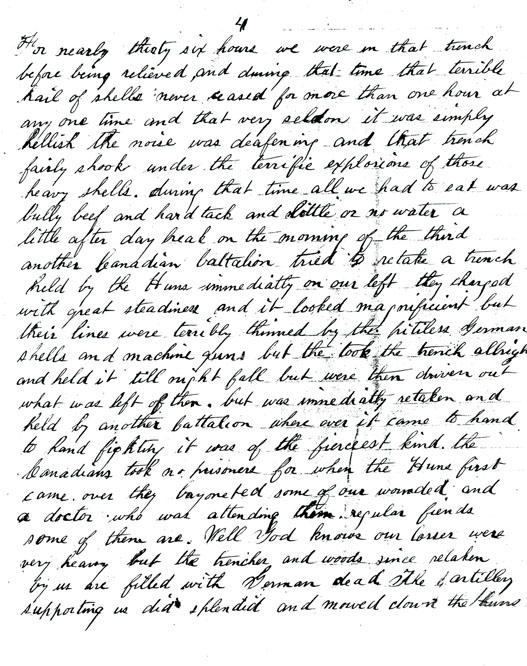 4
For nearly thirty six hours we were in that trench
before being relieved and during that time that terrible
hail of shells never ceased for more than one hour at
any one time and that very seldon it was simply
hellish the noise was deafening and that trench
fairly shook under the terrific explosions of those
heavy shells. during that time all we had to eat was
bully beef and hard tack and little or no water a
little after day break on the morning of the third
another Canadian battalion tried to retake a trench
held by the Huns immediatly on our left they charged
with great steadiness and it looked magnificient but
their lines were terribly thinned by the pitiless German
shells and machine guns but the took the trench allright
and held it till night fall but were then driven out
what was left of then. but was immediatly retaken and
held by another battalion where over it came to hand
to hand fighting it was of the fierceest kind. the
Canadians took no prisoners for when the Huns first
came over they bayoneted some of our wounded and
a doctor who was attending them. regular fiends
some of them are. Well God knows our losses were
very heavy but the trenches and woods since retaken
by us are filled with German dead The artillery
supporting us did splendid and mowed down the Huns